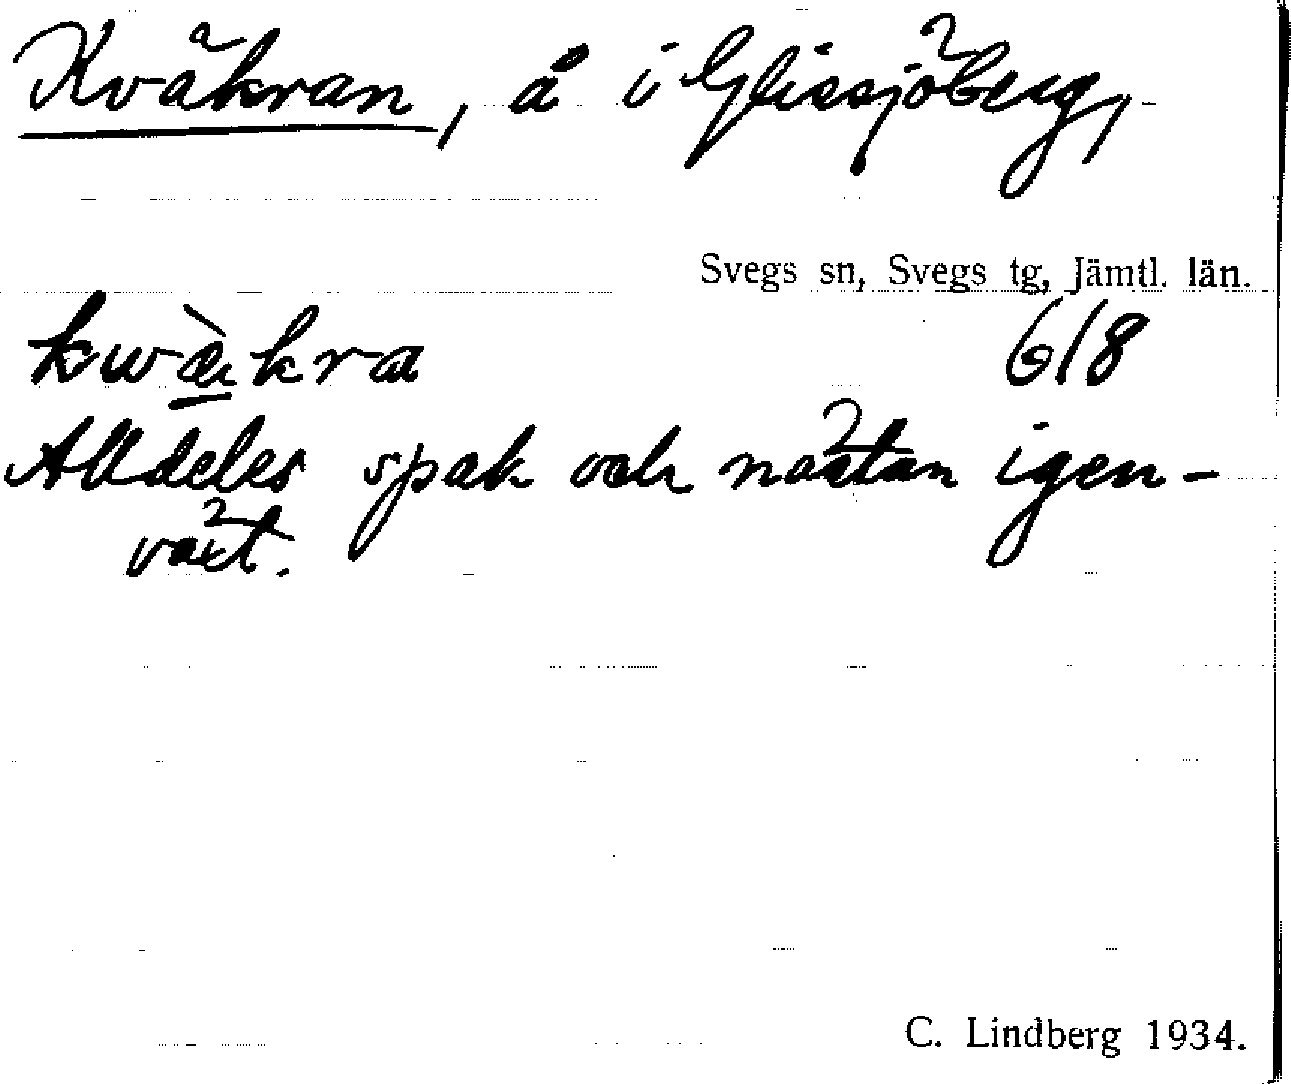 Kväkran, å i Glissjöberg,
Svegs sn, Svegs tg, Jämtl. län.
kwæ̀kra 6/8
Alldeles spak och nästan igen-
växt.
C. Lindberg 1934.